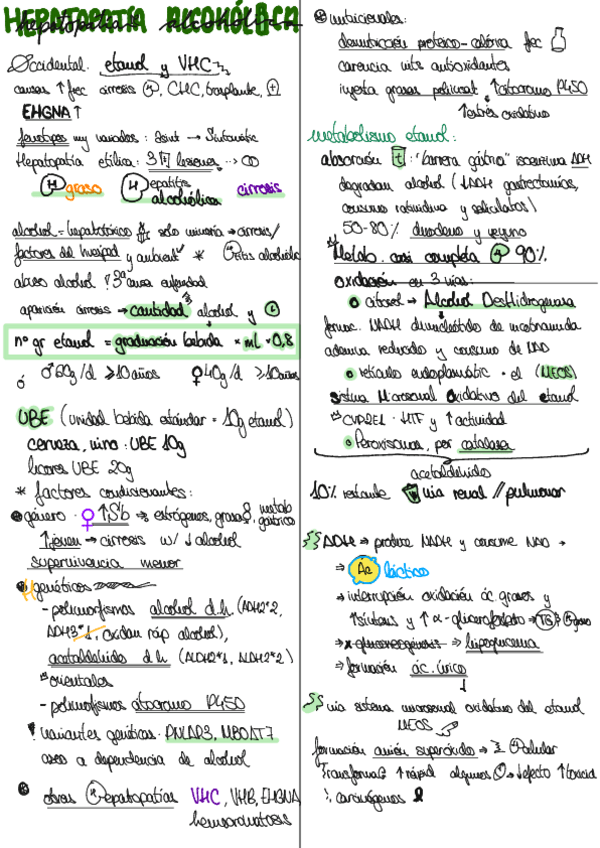 HEPATOPATÍA ALCOHÓLICA
Occidental: etanol y VHC
causas ↑ frec cirrosis H, CHC, trasplante, +
EHGNA ↑
fenotipos muy variados: asint → sintomátic
Hepatopatía etílica: 3 lesiones
H graso Hepatitis alcohólica cirrosis
alcohol = hepatotóxico solo minoría → cirrosis/
factores del huésped y ambient * Hitis alcohólica
abuso alcohol 3ª causa enfermedad
aparición cirrosis → cantidad alcohol y t
nº gr etanol = graduación bebida × ml × 0,8
♂ 60g/d ≥10 años ♀ 40g/d ≥10 años
UBE (unidad bebida estándar = 10g etanol)
cerveza, vino: UBE 10g
licores UBE 20g
* factores condicionantes:
género · ♀ ↑Sb → estrógenos, grasa, metab gástrico
↑ joven → cirrosis w/ ↓ alcohol
supervivencia menor
genéticos
- polimorfismos alcohol d.h (ADH2*2,
ADH3*1, oxidan ráp alcohol),
acetaldehído d.h (ALDH2*1, ALDH2*2)
orientales
- polimorfismos citocromo P450
! variantes genéticas: PNLAP3, MBOAT7
asoc a dependencia de alcohol
otras Hepatopatías VHC, VHB, EHGNA
hemocromatosis
nutricionales:
desnutrición proteico-calórica frec
carencia vits antioxidantes
ingesta grasas poliinsat ↑citocromo P450
↑estrés oxidativo
metabolismo etanol:
absorción t: "barrera gástrica" isoenzima ADH
degradan alcohol (↓ADH gastrectomías,
consumo ranitidina y salicilatos)
50-80% duodeno y yeyuno
Metab. casi completa H 90%
oxidación en 3 vías:
citosol → Alcohol DesHidrogenasa
forma. NADH dinucleótido de nicotinamida
adenina reducido y consumo de NAD
retículo endoplasmático · el (MEOS)
Sistema Microsomal Oxidativo del etanol
CYP2E1 · HTF y ↑ actividad
Peroxisomas, por catalasa
acetaldehído
10% restante vía renal // pulmonar
ADH → produce NADH y consume NAD →
⇒ Ác láctico
→ interrupción oxidación ác grasos y
↑síntesis y ↑ α-glicerofosfato → TG H graso
→ x gluconeogénesis → hipoglucemia
→ formación ác. úrico
vía sistema microsomal oxidativo del etanol
MEOS
formación anión superóxido → celular
Transformac ↑ rápid algunos → defecto ↑ toxicid
carcinógenos